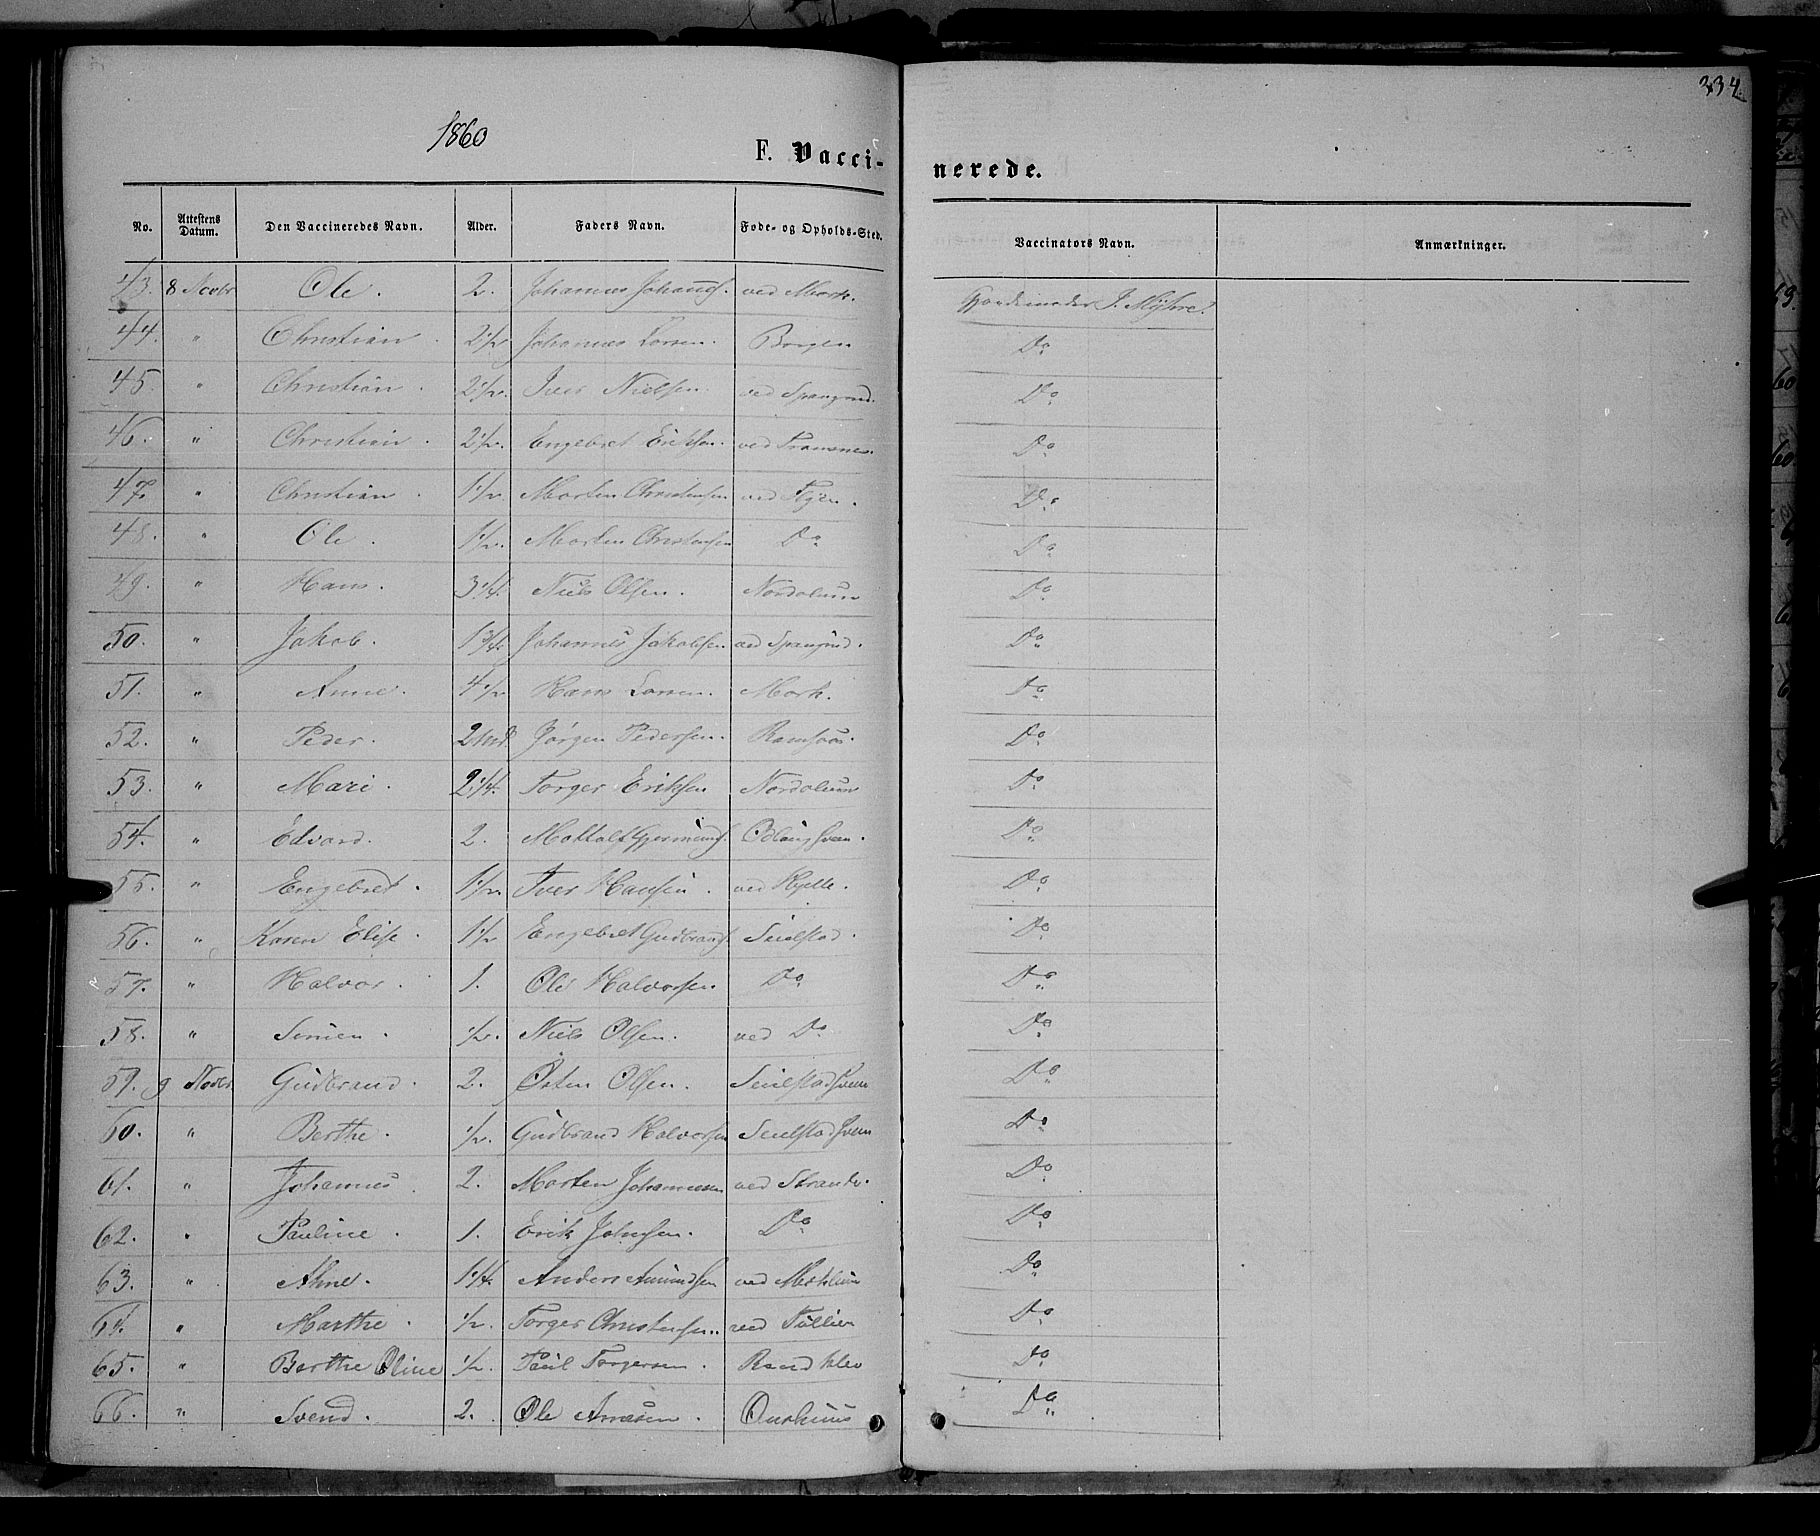 334.
1860
F. Vaccinerede.
No. Attestens Datum. Den Vaccineredes Navn. Alder. Faders Navn. Føde- og Opholds-Sted. Vaccinators Navn. Anmærkninger.
43. 8 Novbr Ole. 2. Johannes Johans. ved Mork. J. Myhre.
44. " Christian. 2 1/2 Johannes Larsen. Borgen Do
45. " Christian. 2 1/2. Iver Nielsen. ved Do
46. " Christian. 2 1/2. Engebret Eriksen. ved Do
47. " Christian. 1 1/2. Morten Christensen ved Do
48. " Ole. 1 1/2. Morten Christensen Do Do
49. " Hans. 3 1/4. Niels Olsen. Nordolum Do
50. " Jakob. 1 3/4. Johannes Jakobsen ved Do
51. " Anne. 4 1/2 Hans Larsen. Mork. Do
52. " Peder. 2 Md. Jørgen Pedersen. Do
53. " Mari. 2 1/4. Torger Eriksen Nordolum Do
54. " Edvard. 2. Do
55. " Engebret. 1 1/2. Iver Hansen. ved Do
56. " Karen Elise. 1 1/2 Engebret Gudbrands. Seielstad. Do
57. " Halvor. 1. Ole Halvorsen Do Do
58. " Simen. 1/2. Niels Olsen. ved Do Do
59. 9 Novbr Gudbrand. 2. Østen Olsen. Seielstadhveen Do
60. " Berthe. 1/2. Gudbrand Halvorsen Seielstadhveen Do
61. " Johannes. 2. Morten Johannesen ved Strande. Do
62. " Pauline. 1. Erik Johnsen. Do Do
63. " Ahne. 1 1/4. Anders Amundsen ved Do
64. " Marthe. 1/2. Torger Christensen. ved Tullien Do
65. " Berthe Oline 1/2. Paul Torgersen. Randklev Do
66. " Svend. 2. Ole Do